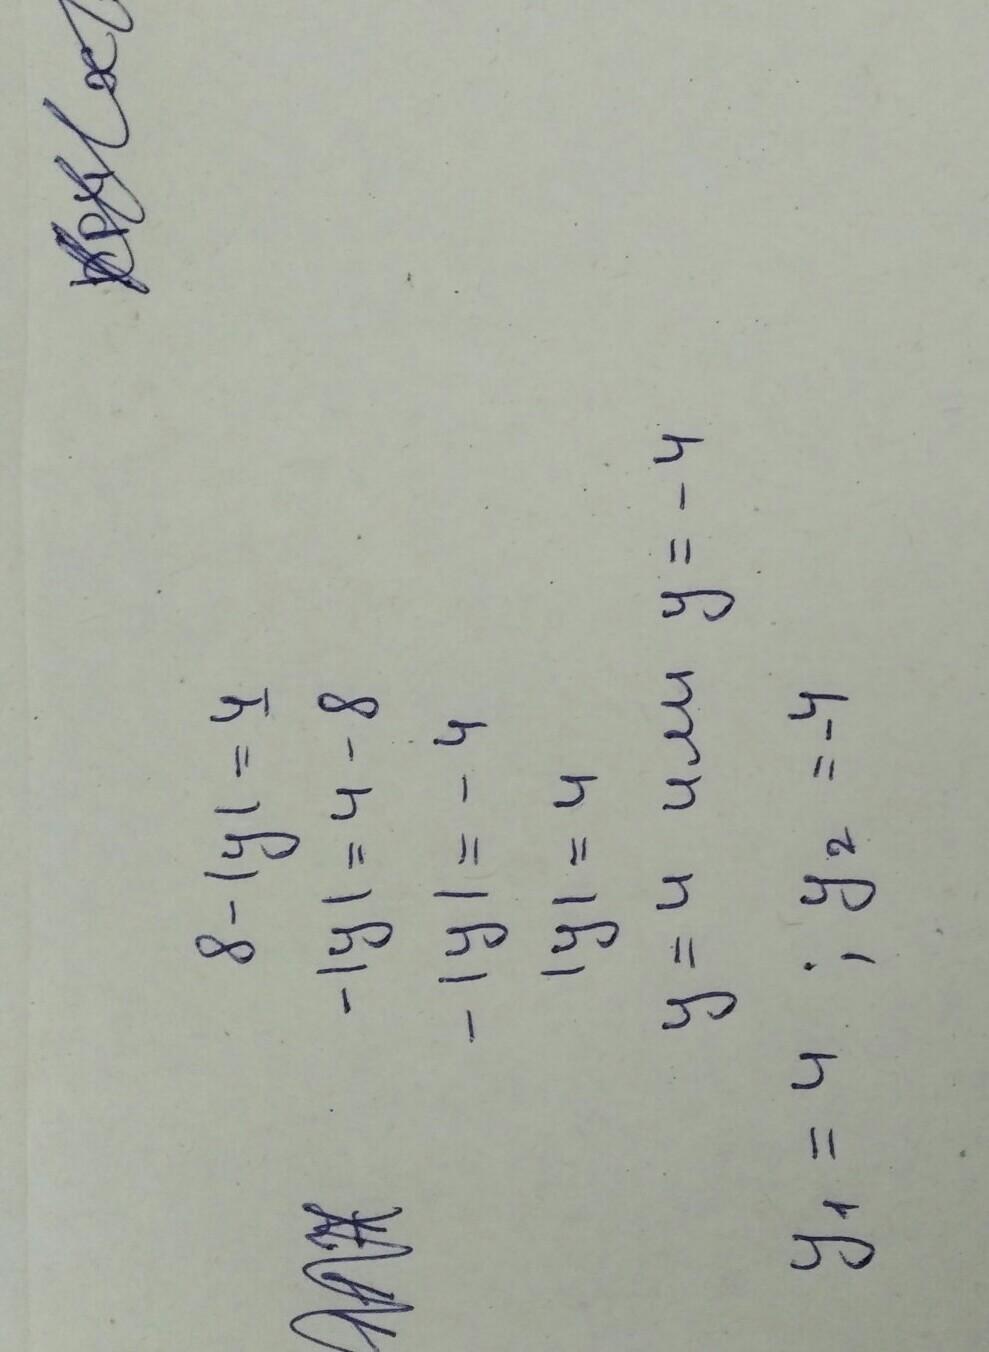 8-|y|=4
-|y|=4-8
-|y|=-4
|y|=4
y=4 или y=-4
y₁=4 ; y₂=-4